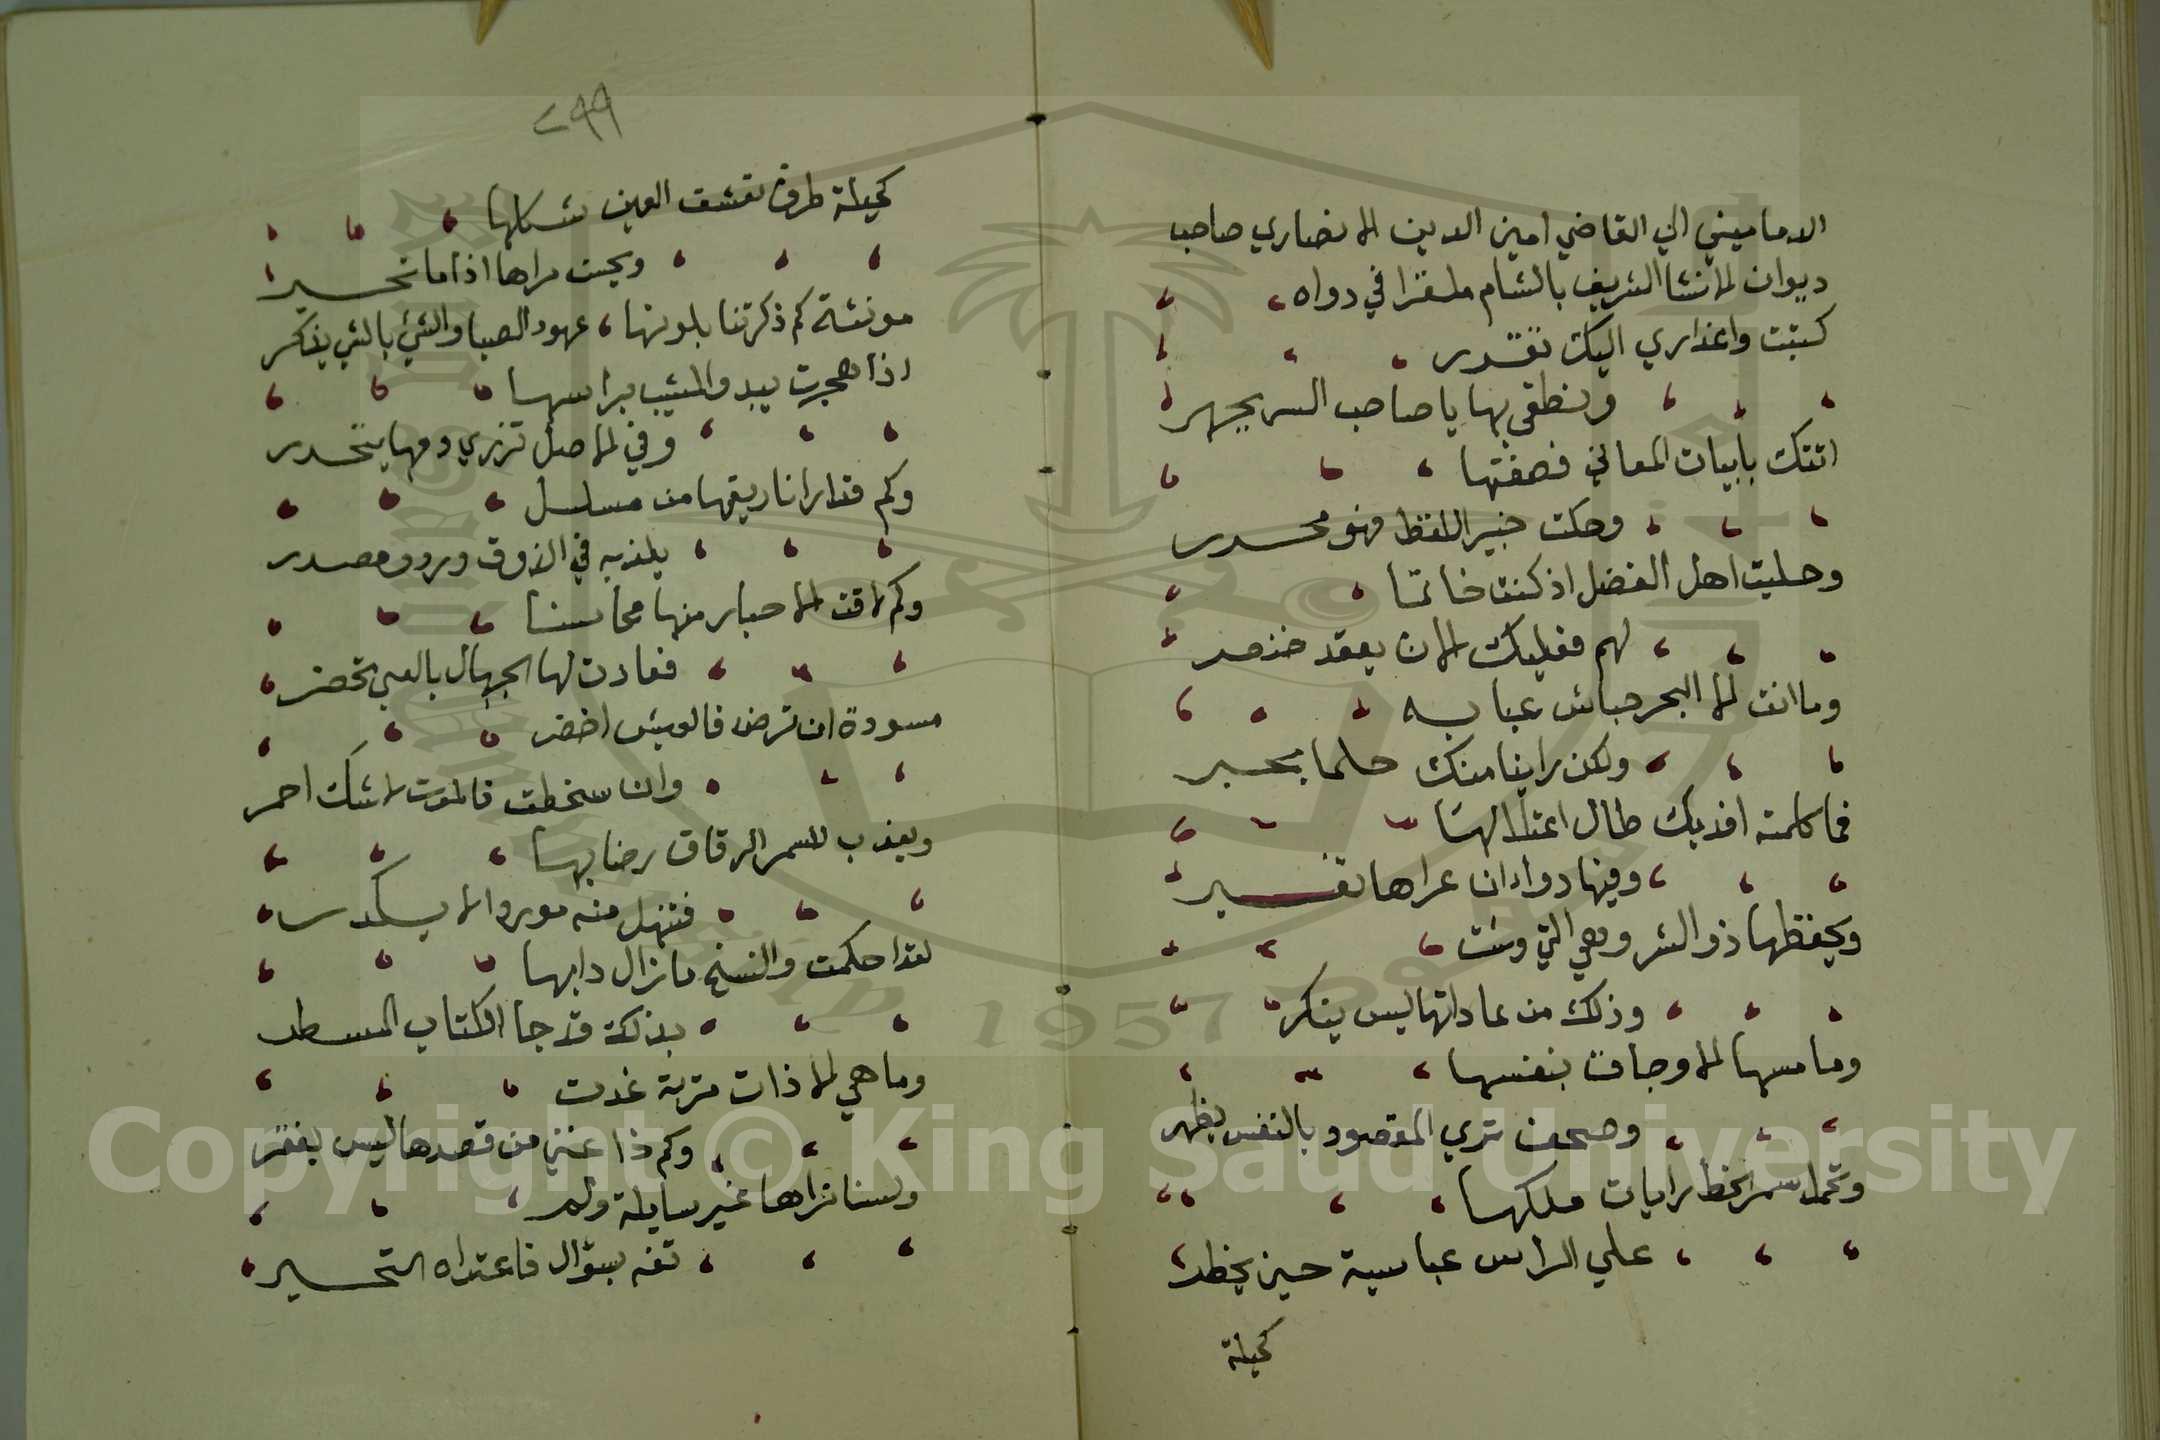 الدماميني الي القاضي امين الدين الانصاري صاحب
ديوان الانشا الشريف بالشام ملغزا في دواه
كتبت واعذاري اليك تقدر
ونطقي بها يا صاحب السر يجهر
اتتك بابيات المعاني فصغتها
وحكت حبير اللفظ فهو محرر
وحليت اهل الفضل اذ كنت خاتما
لهم فعليك الان يعقد خنصر
وما انت الا البحر جاش عبابه
ولكن راينا منك حلما بحبر
فما كلمة افديك طال اعتلالها
وفيها دواء ان عراها تغير
ويحفظها ذو السر وهي التي وشت
وذلك من عاداتها ليس ينكر
وما مسها الا وجات بنفسها
وصحف تري المقصود بالنفس يظهر
وتحمل سمر الخط رايات ملكها
علي الراس عباسية حين يخطر
كحيلة
٢٩٩
كحيلة طرف تعشق العين شكلها
ويحسن مراها اذا ما تحير
مونثة كم ذكرتنا بلونها عهود الصبا والشي بالشي يذكر
اذا هجرت يبدو المشيب براسها
وفي الوصل تزري دمعها يتحدر
وكم قد ارانا ريقها من مسلسل
يلذ به في الذوق ورد ومصدر
وكم لاقت الاحبار منها محاسنا
فعادت لها الجهال بالعي تحصر
مسودة ان ترض فالعيش اخضر
وان سخطت فالموت لا شك احمر
ويعذب للسمر الرقاق رضابها
فتنهل منه موردا لا يكدر
لقد احكمت والنسخ ما زال دابها
بذلك قد جا الكتاب المسطر
وما هي الا ذات متربة غدت
وكم ذا غني من قصدها ليس يفقر
ولسنا نراها غير سايلة ولم
تفه بسؤال فاعتداه التحير
Copyright © King Saud University
1957